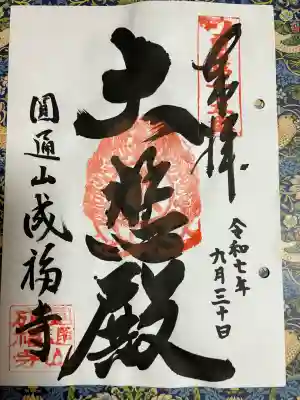 奉拝
令和七年
六月三十日
大悲殿
圓通山成福寺